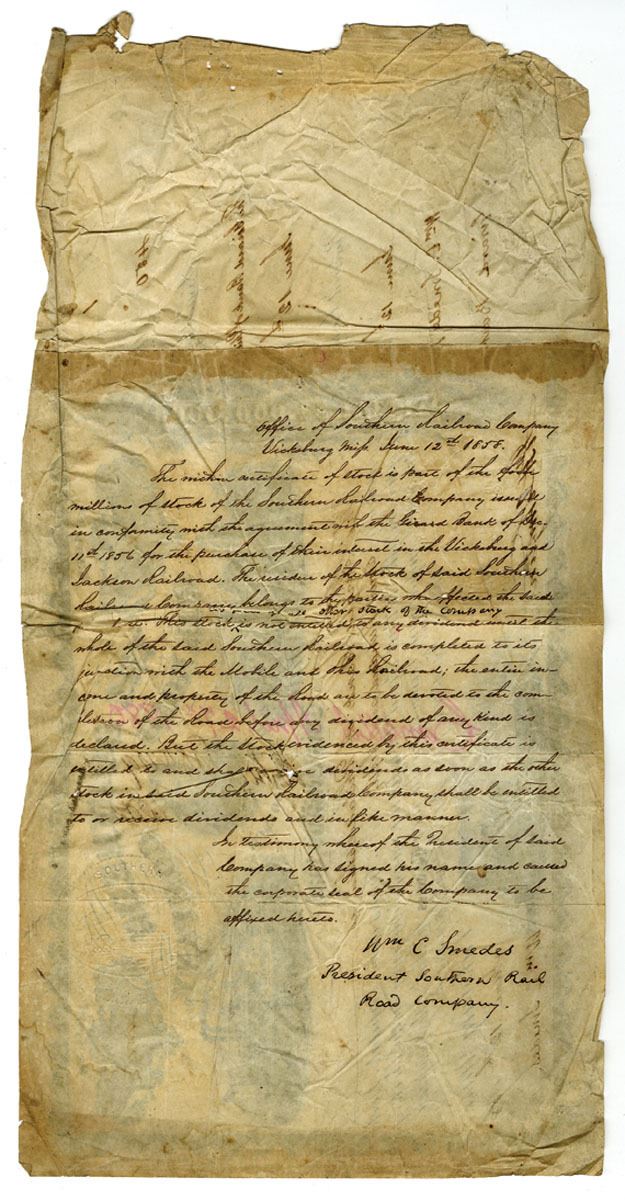 480
Office of Southern Railroad Company
Vicksburg Miss June 12th 1858.
The within certificate of stock is part of the
millions of stock of the Southern Railroad Company issued
in conformity with the agreement with the Girard Bank of Dec.
11th 1856 for the purchase of their interest in the Vicksburg and
Jackson Railroad. The residue of the Stock of said Southern
Railroad Company belongs to the parties who effected the said
other stock of the company
This stock is not entitled to any dividend until the
whole of the said Southern Railroad is completed to its
junction with the Mobile and Ohio Railroad; the entire in-
come and property of the Road are to be devoted to the com-
pletion of the Road before any dividend of any kind is
declared. But the stock evidenced by this certificate is
entitled to and shall receive dividends as soon as the other
stock in said Southern Railroad Company shall be entitled
to or receive dividends and in like manner.
In testimony whereof the President of said
Company has signed his name and caused
the corporate seal of the Company to be
affixed hereto.
Wm C Smedes
President Southern Rail
Road Company.